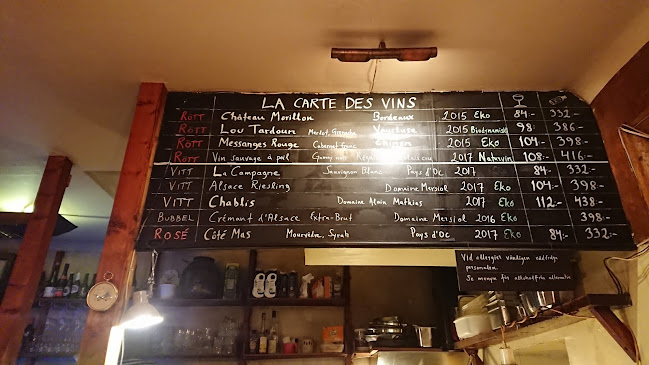 LA CARTE DES VINS
RÖTT Château Morillon Bordeaux 2015 Eko 84:- 332:-
RÖTT Lou Tardoun Merlot, Grenache Vaucluse 2015 Biodynamiskt 98:- 386:-
RÖTT Messanges Rouge Cabernet Franc Chinon 2015 Eko 104:- 398:-
RÖTT Vin sauvage à poil Gamay noir 2017 Naturvin 108:- 416:-
VITT La Campagne Sauvignon Blanc Pays d'Oc 2017 84:- 332:-
VITT Alsace Riesling Domaine Mersiol 2017 Eko 104:- 398:-
VITT Chablis Domaine Alain Mathias 2017 Eko 112:- 438:-
BUBBEL Crémant d'Alsace Extra-Brut Domaine Mersiol 2016 Eko 398:-
ROSÉ Côté Mas Mourvèdre, Syrah Pays d'Oc 2017 Eko 84:- 332:-
Vid allergier vänligen rådfråga
personalen.
Se menyn för alkoholfria alternativ.